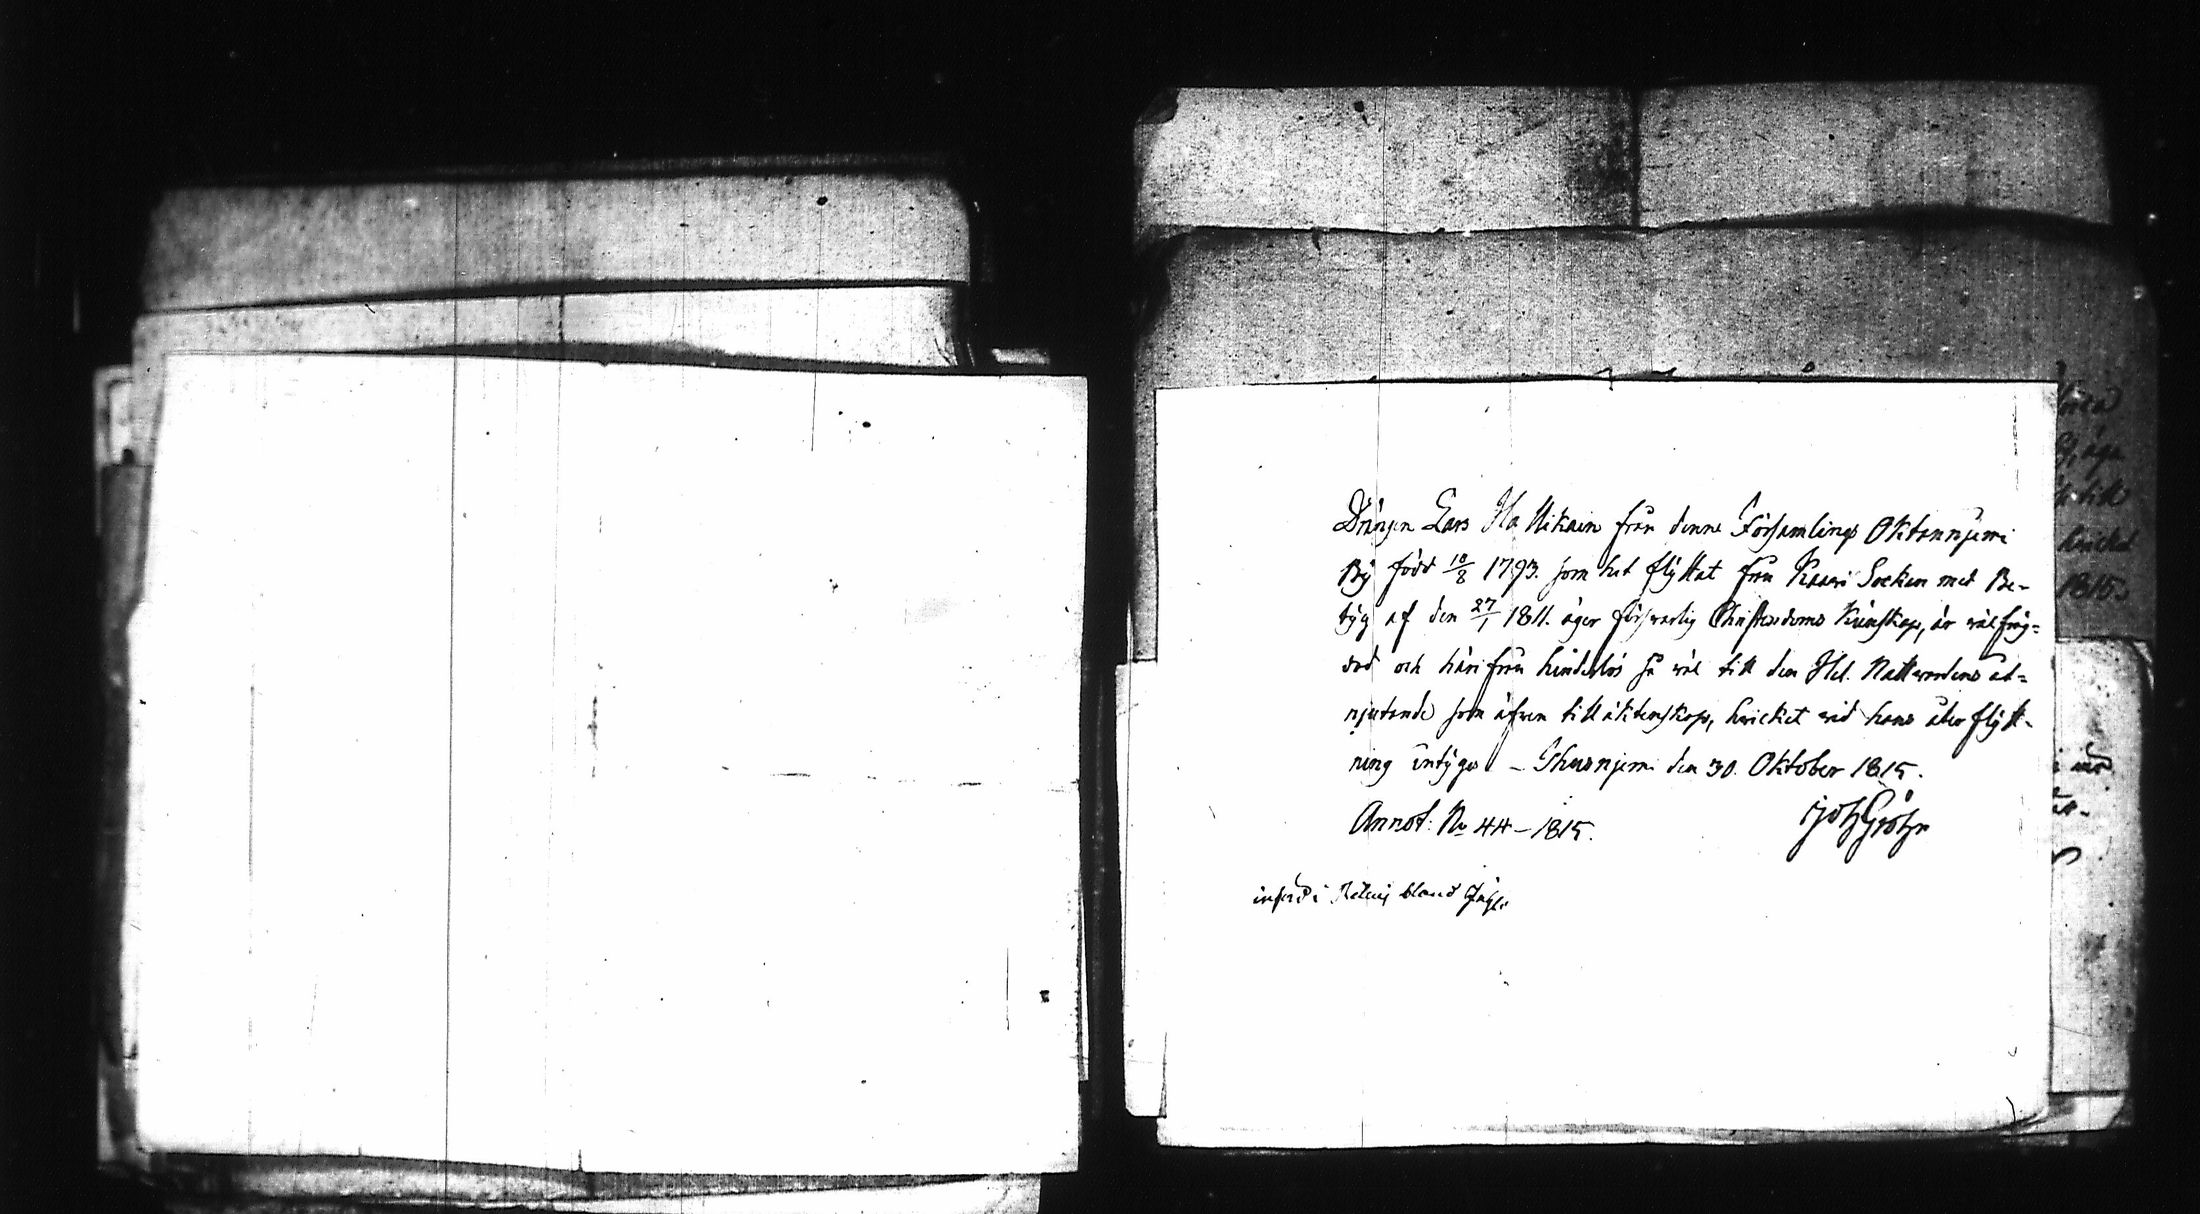 Drängen Lars Hattikain från denne Församlings Oktannjemi
By född 10/8 1793. som hit flyttat från Kaavi Socken med Be-
tyg af den 27/1 1811. äger försvarlig Christendoms Kunskap, är välfräg=
dad och härifrån hinderlös så väl till den Hel. Nattvardens åt=
njutande som äfven till äktenskap, hvilket vid hans återflytt-
ning intÿgas – Thusnjemi den 30. Oktober 1815.
Annot: No 44 – 1815. Joh Gröhn
införd i bland
hvilket
1815.